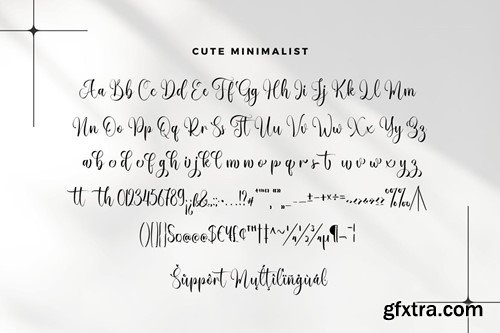 CUTE MINIMALIST
Aa Bb Cc Dd Ee Ff Gg Hh Ii Jj Kk Ll Mm
Nn Oo Pp Qq Rr Ss Tt Uu Vv Ww Xx Yy Zz
a b c d e f g h i j k l m n o p q r s t u v w x y z
tt th 0123456789
Šûppört Mųltïlïñgùál
gfxtra.com